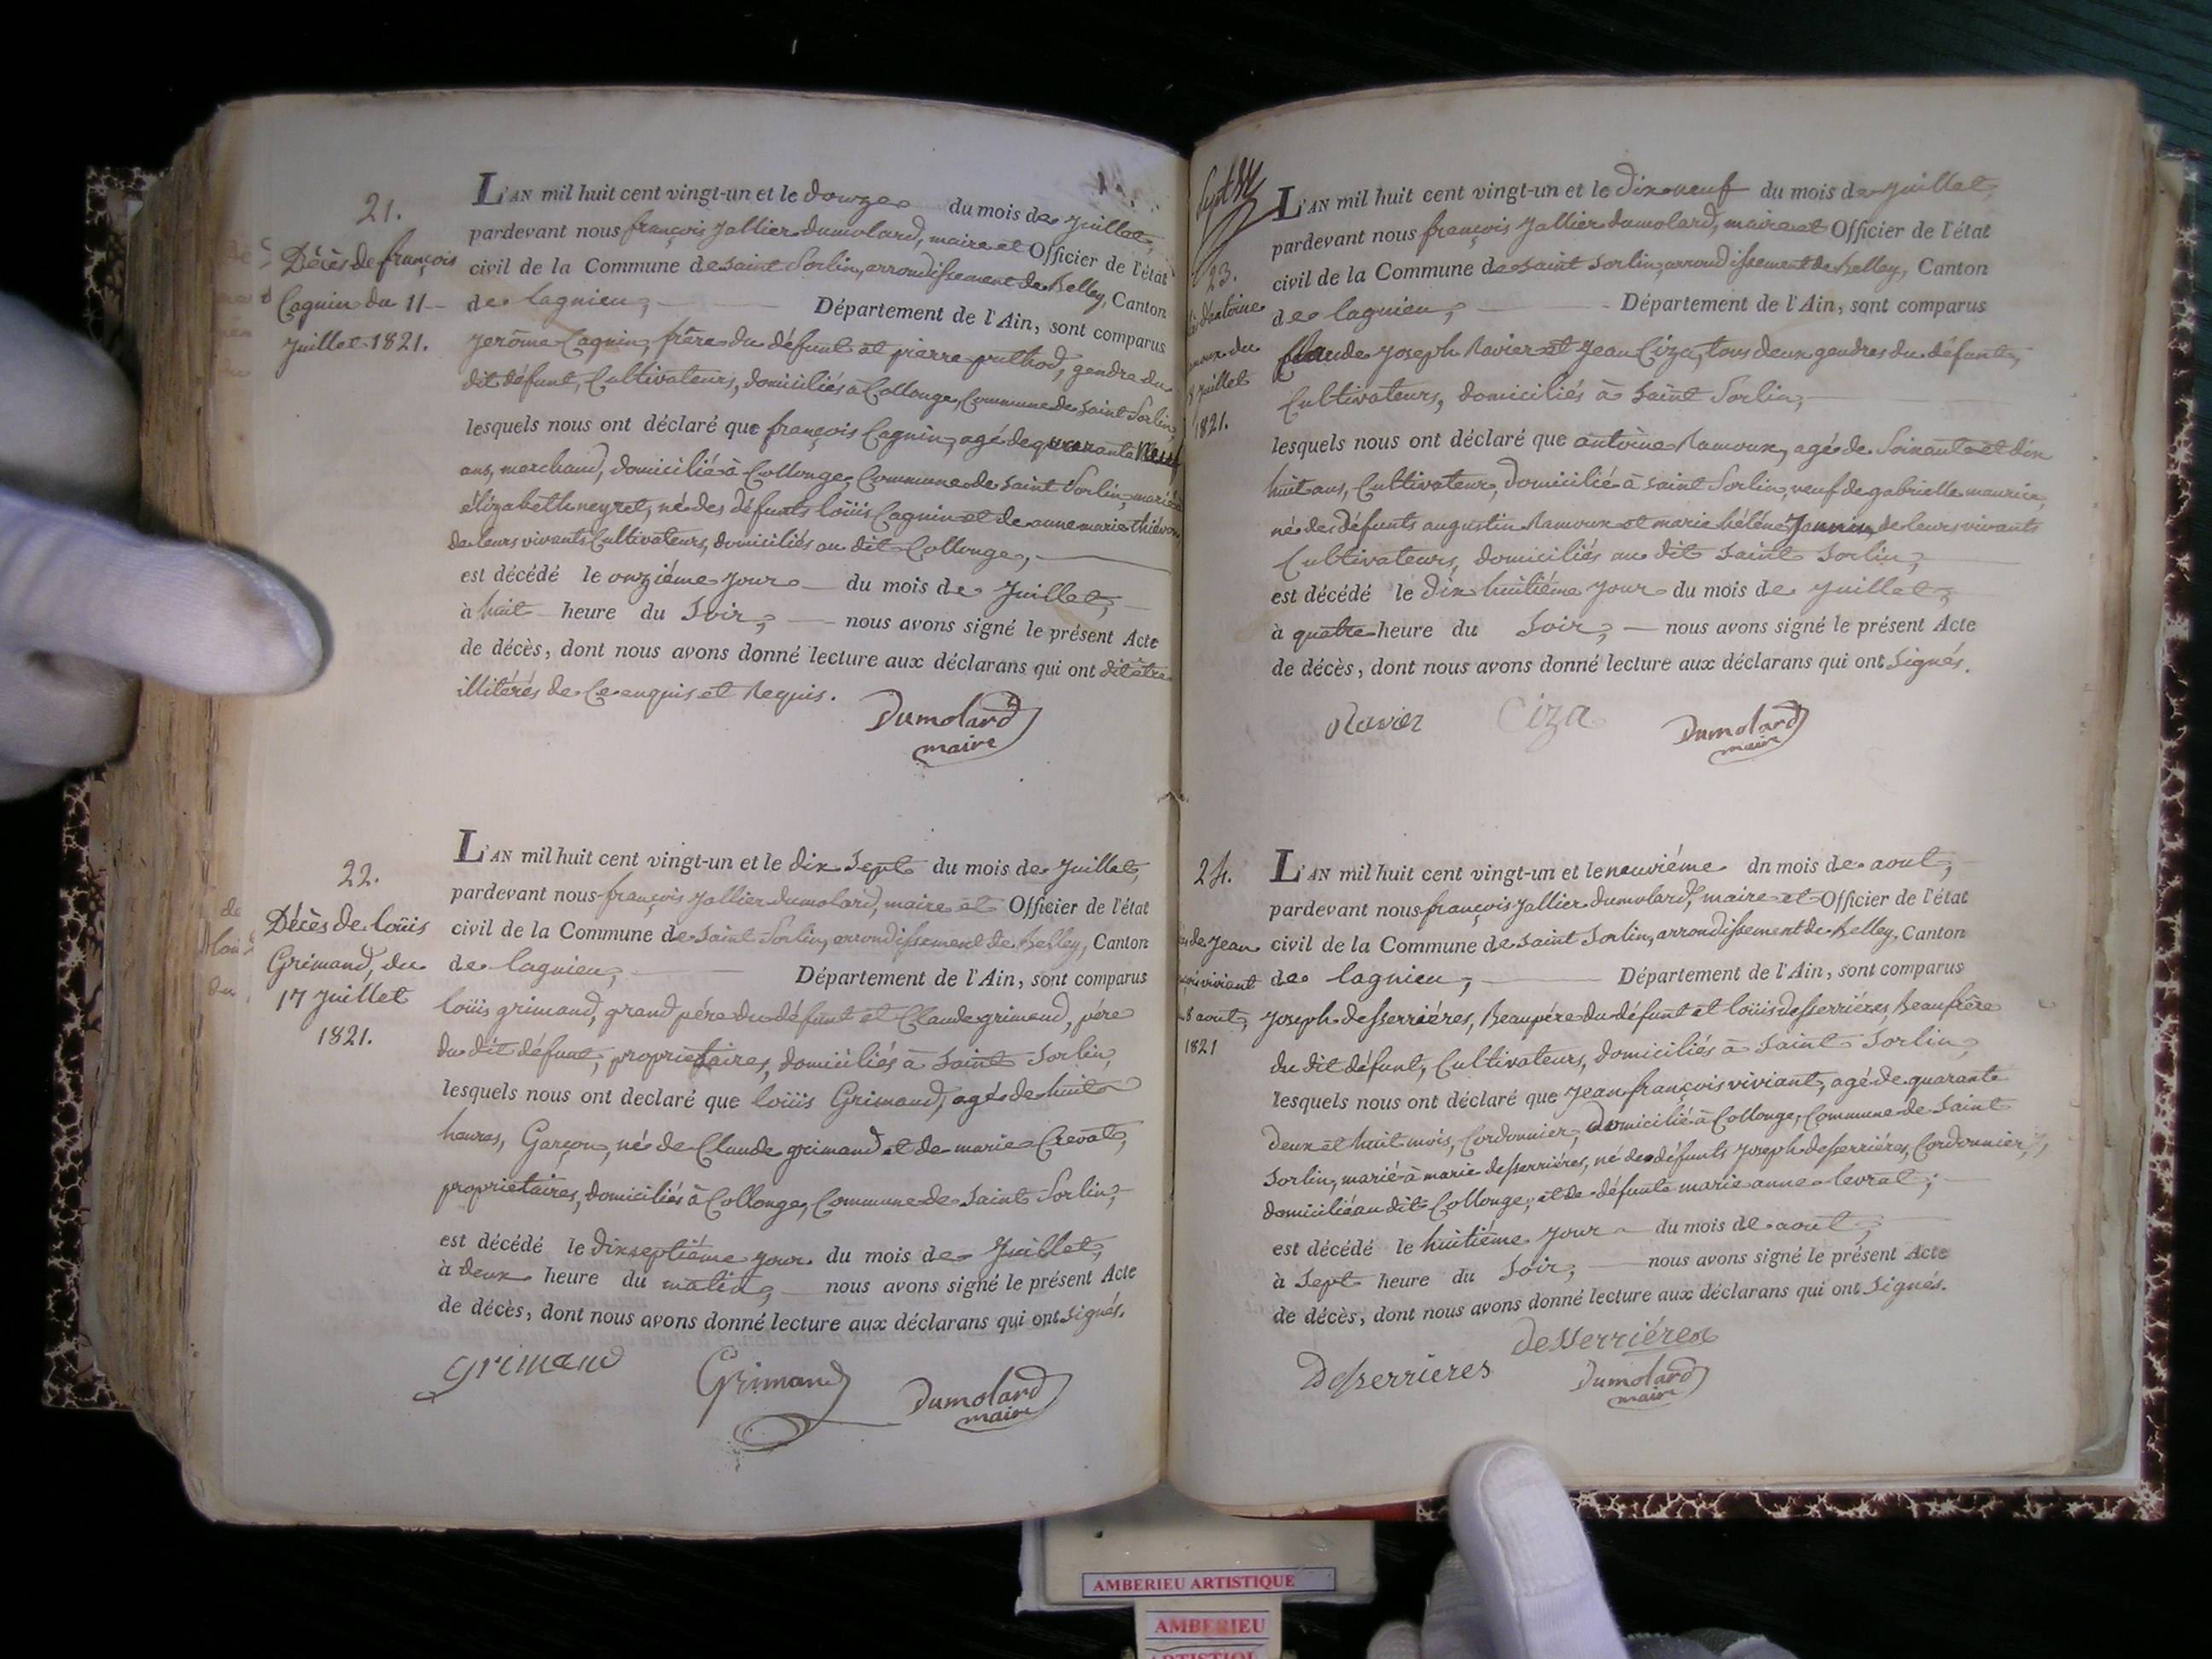 21.
Décès de françois
Cagnin du 11
Juillet 1821.
L'AN mil huit cent vingt-un et le douze du mois de Juillet,
pardevant nous françois Jallier dumolard, maire et Officier de l'état
civil de la Commune de saint Sorlin, arrondissement de Belley, Canton
de lagnieu, Département de l'Ain, sont comparus
Jerôme Cagnin, frère du défunt et pierre puthod, gendre du
dit défunt, Cultivateurs, domiciliés à Collonge, Commune de saint Sorlin,
lesquels nous ont déclaré que françois Cagnin, agé de quarante neuf
ans, marchand, domicilié à Collonge, Commune de saint Sorlin, marié à
élizabeth neyret, né des défunts loüis Cagnin et de anne marie thiévon,
de leurs vivants Cultivateurs, domiciliés au dit Collonge,
est décédé le onziéme Jour du mois de Juillet,
à huit heure du Soir, nous avons signé le présent Acte
de décès, dont nous avons donné lecture aux déclarans qui ont dit être
illitérés de Ce enquis et Requis.
Dumolard
maire
22.
Décès de loüis
Grimand, du
17 Juillet
1821.
L'AN mil huit cent vingt-un et le dix Sept du mois de Juillet,
pardevant nous françois Jallier dumolard, maire et Officier de l'état
civil de la Commune de saint Sorlin, arrondissement de Belley, Canton
de lagnieu, Département de l'Ain, sont comparus
loüis grimand, grand pére du défunt et Claude grimand, pére
du dit défunt, propriétaires, domiciliés à Saint Sorlin,
lesquels nous ont declaré que loüis Grimand, agé de huit
heures, Garçon, né de Claude grimand et de marie Crevat,
propriétaires, domiciliés à Collonge, Commune de Saint Sorlin,
est décédé le dixseptiéme Jour du mois de Juillet,
à deux heure du matin, nous avons signé le présent Acte
de décès, dont nous avons donné lecture aux déclarans qui ont Signés.
Grimand
Grimand
Dumolard
maire
23.
d'antoine
du
Juillet
1821.
L'AN mil huit cent vingt-un et le dix neuf du mois de Juillet,
pardevant nous françois Jallier dumolard, maire et Officier de l'état
civil de la Commune de saint Sorlin, arrondissement de Belley, Canton
de lagnieu, Département de l'Ain, sont comparus
Claude Joseph Ravier et Jean Ciza, tous deux gendres du défunt,
Cultivateurs, domiciliés à Saint Sorlin,
lesquels nous ont déclaré que antoine Ramoux, agé de Soixante et dix
huit ans, Cultivateur, domicilié à saint Sorlin, veuf de gabrielle maurice,
né des défunts augustin Ramoux et marie héléne Jannin, de leurs vivants
Cultivateurs, domiciliés au dit saint Sorlin,
est décédé le dix huitiéme Jour du mois de Juillet,
à quatre heure du Soir, nous avons signé le présent Acte
de décès, dont nous avons donné lecture aux déclarans qui ont Signés.
Ravier
Ciza
Dumolard
maire
24.
de Jean
viviant
8 aout,
1821
L'AN mil huit cent vingt-un et le neuviéme dn mois de aout,
pardevant nous françois Jallier dumolard, maire et Officier de l'état
civil de la Commune de saint Sorlin, arrondissement de Belley, Canton
de lagnieu, Département de l'Ain, sont comparus
Joseph desserriéres, Beaupére du défunt et loüis desserriéres, Beaufrère
du dit défunt, Cultivateurs, domiciliés à saint Sorlin,
lesquels nous ont déclaré que Jean françois viviant, agé de quarante
deux et huit mois, Cordonnier, domicilié à Collonge, Commune de Saint
Sorlin, marié à marie desserriéres, né de défunts Joseph desserriéres, Cordonnier,
domicilié au dit Collonge, et de défunte marie anne levrat;
est décédé le huitiéme Jour du mois de aout,
à Sept heure du Soir, nous avons signé le présent Acte
de décès, dont nous avons donné lecture aux déclarans qui ont Signés.
desserriéres
Desserrieres
Dumolard
maire
AMBERIEU ARTISTIQUE
AMBERIEU
ARTISTIQUE